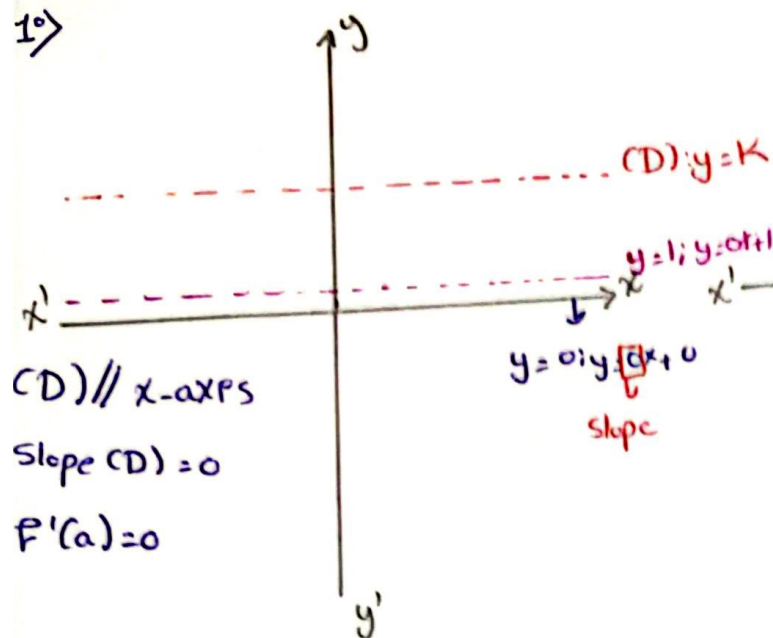 1°)
y
(D): y = K
y = 1; y = 0x+1
x'
x
x'
y = 0; y = 0x + 0
slope
(D) // x-axis
Slope (D) = 0
F'(a) = 0
y'